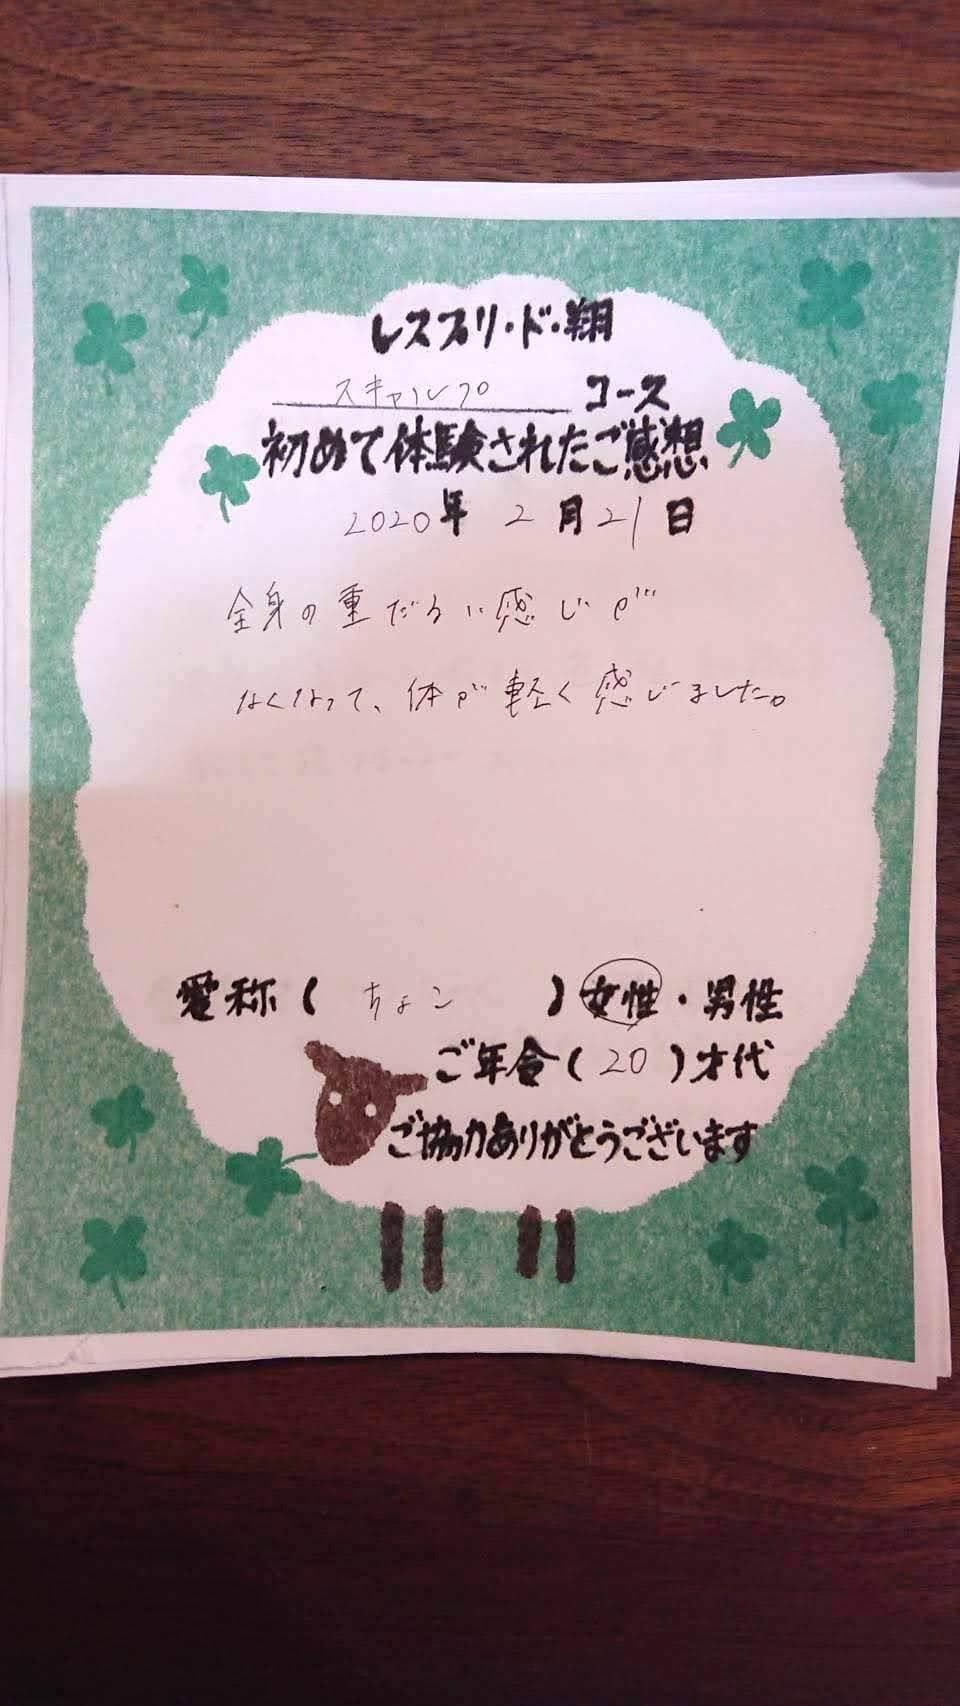 レスプリ・ド・翔
スキャルプ コース
初めて体験されたご感想
2020年 2月21日
全身の重だるい感じが
なくなって、体が軽く感じました。
愛称(ちょこ)女性・男性
ご年令(20)才代
ご協力ありがとうございます